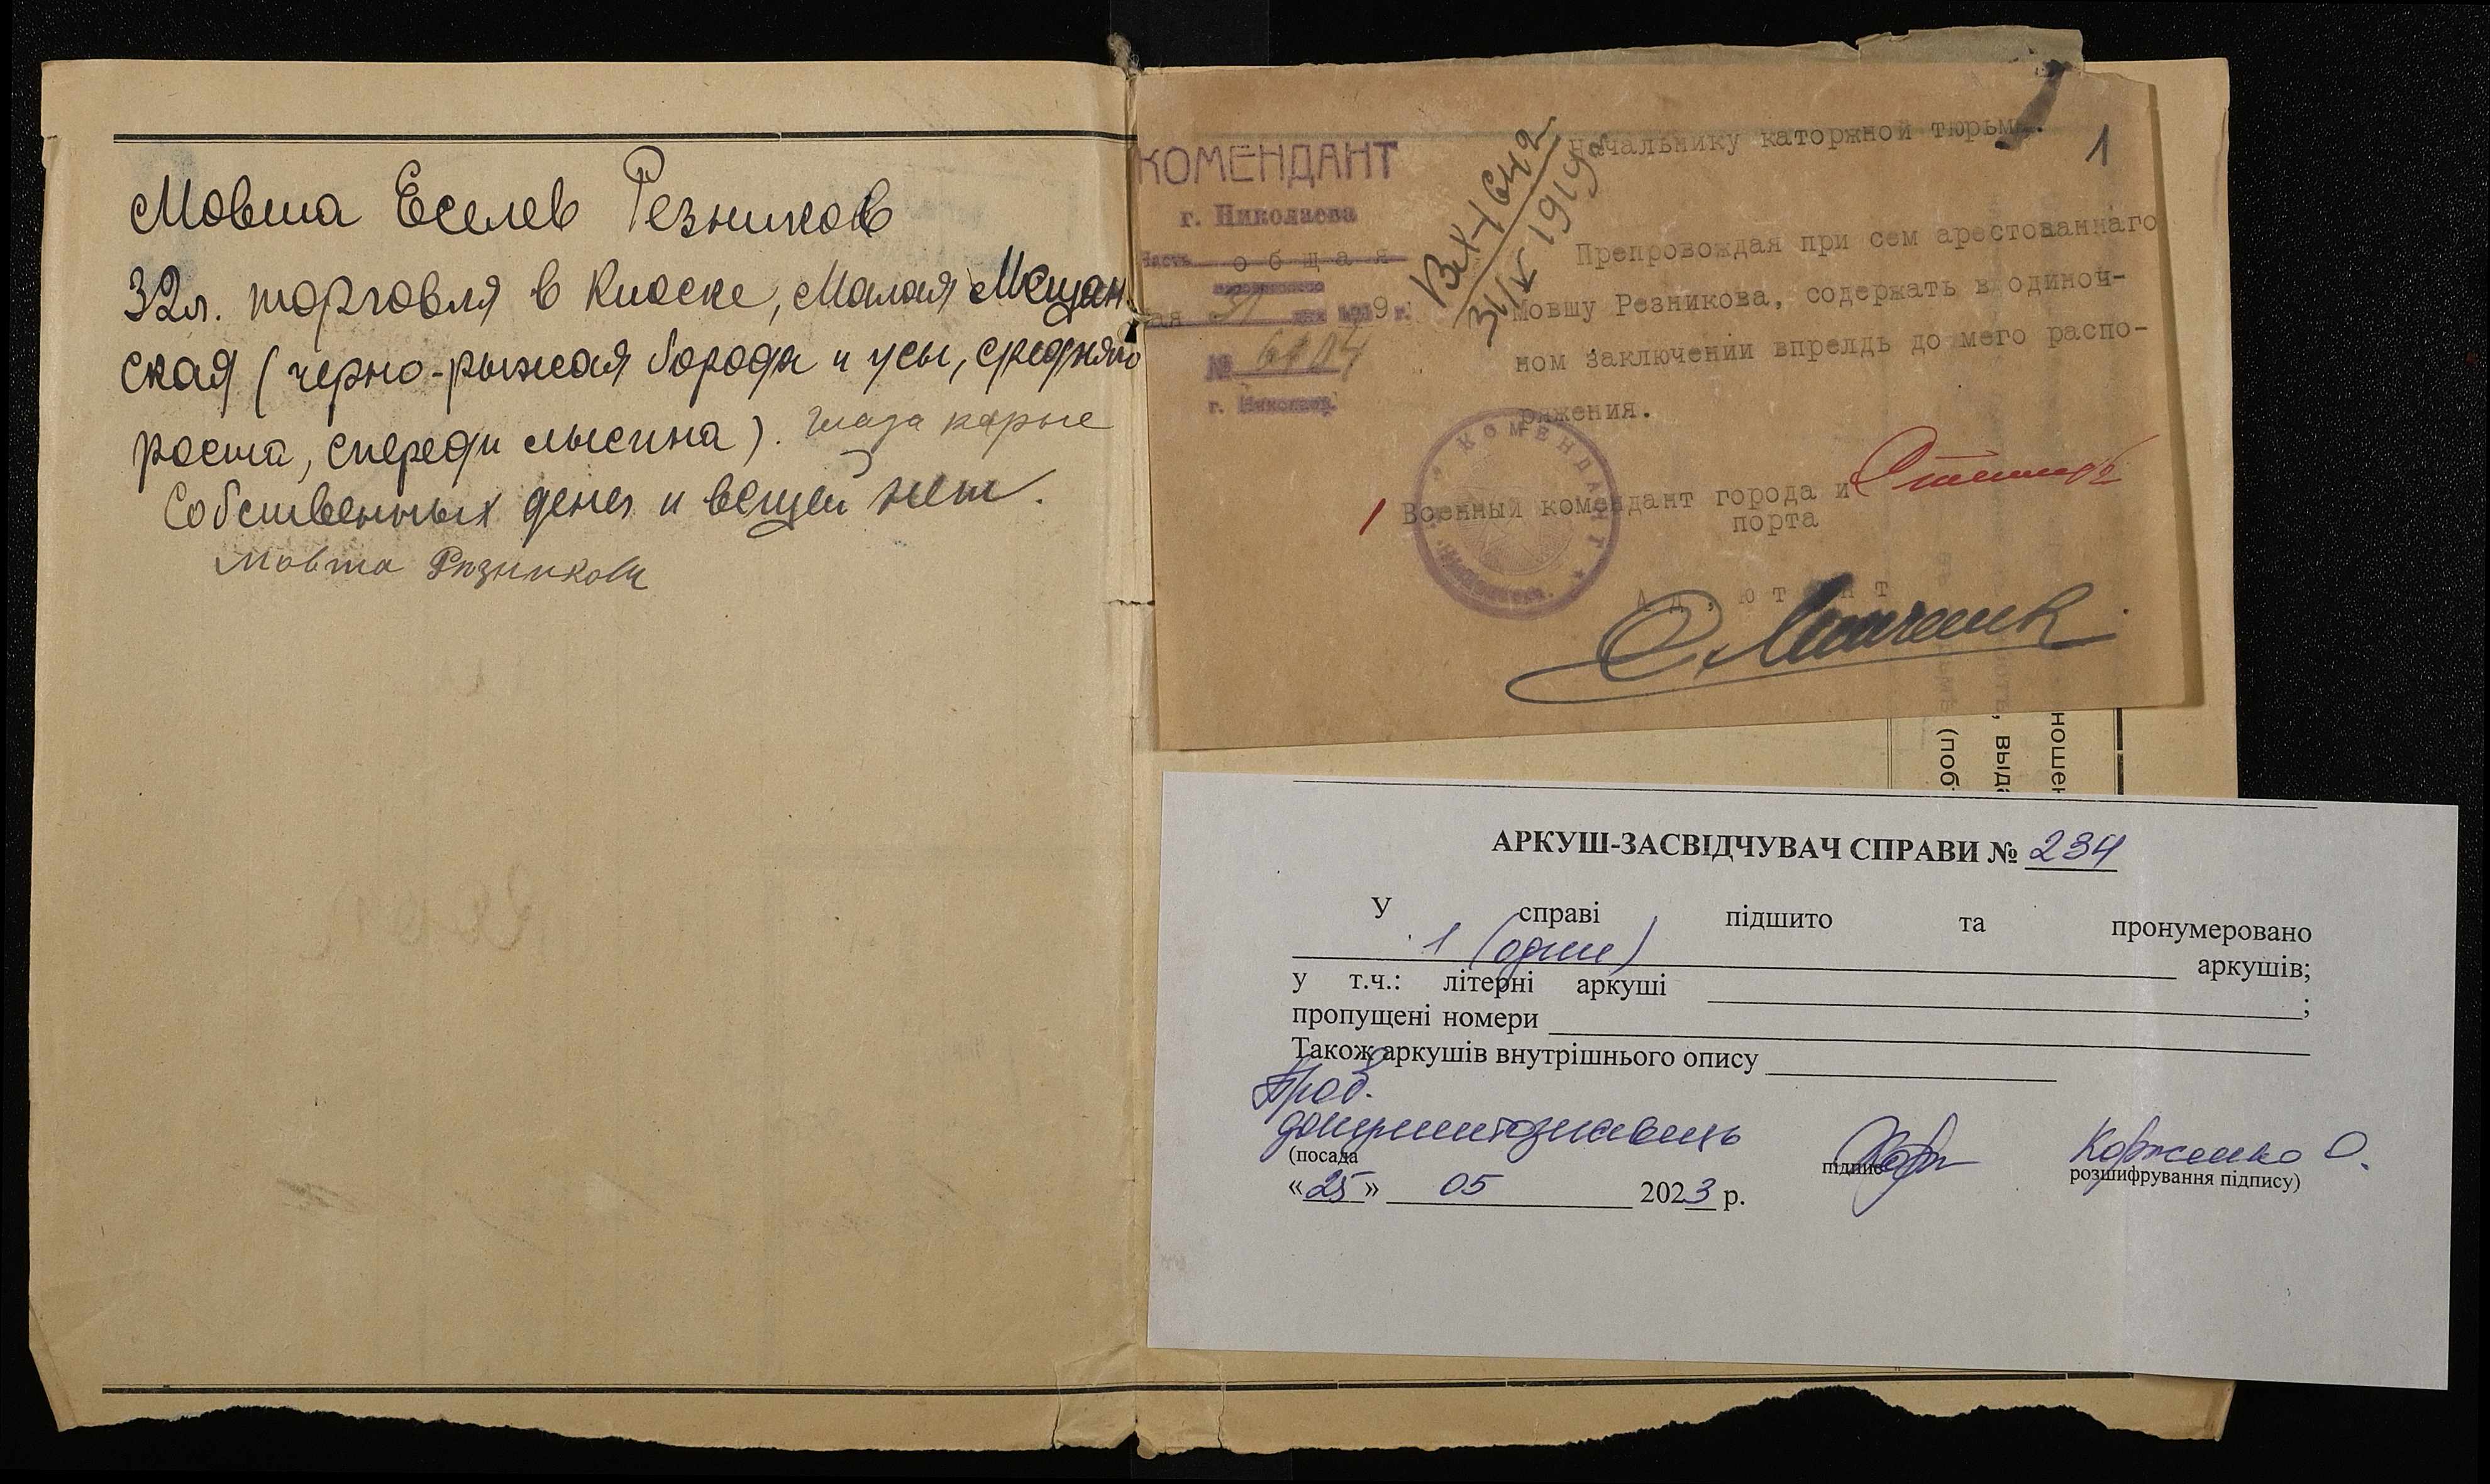 Мовша Еселев Резников
32л. торговля в Киоске, Малая Мещан-
ская (черно-рыжая борода и усы, среднего
роста, спереди лысина). глаза карые
Собственных денег и вещей нет.
Мовша Резников
КОМЕНДАНТ
г. Николаева
Часть общая
мая 31 дня 1919 г.
№ 6104
г. Николаев.
Вх 4642
31/V 1919
Начальнику каторжной тюрьмы.
1
Препровождая при сем арестованнаго
Мовшу Резникова, содержать в одиноч-
ном заключении впредь до мего распо-
ряжения.
КОМЕНДАНТ
Военный комендант города и
порта
Ад'ютант
ношен
, выда
(поб
АРКУШ-ЗАСВІДЧУВАЧ СПРАВИ № 234
У справі підшито та пронумеровано
1 (один) аркушів;
у т.ч.: літерні аркуші ;
пропущені номери
Також аркушів внутрішнього опису
Пров.
документознавець
Корженко О.
(посада підпис розшифрування підпису)
«25» 05 2023 р.